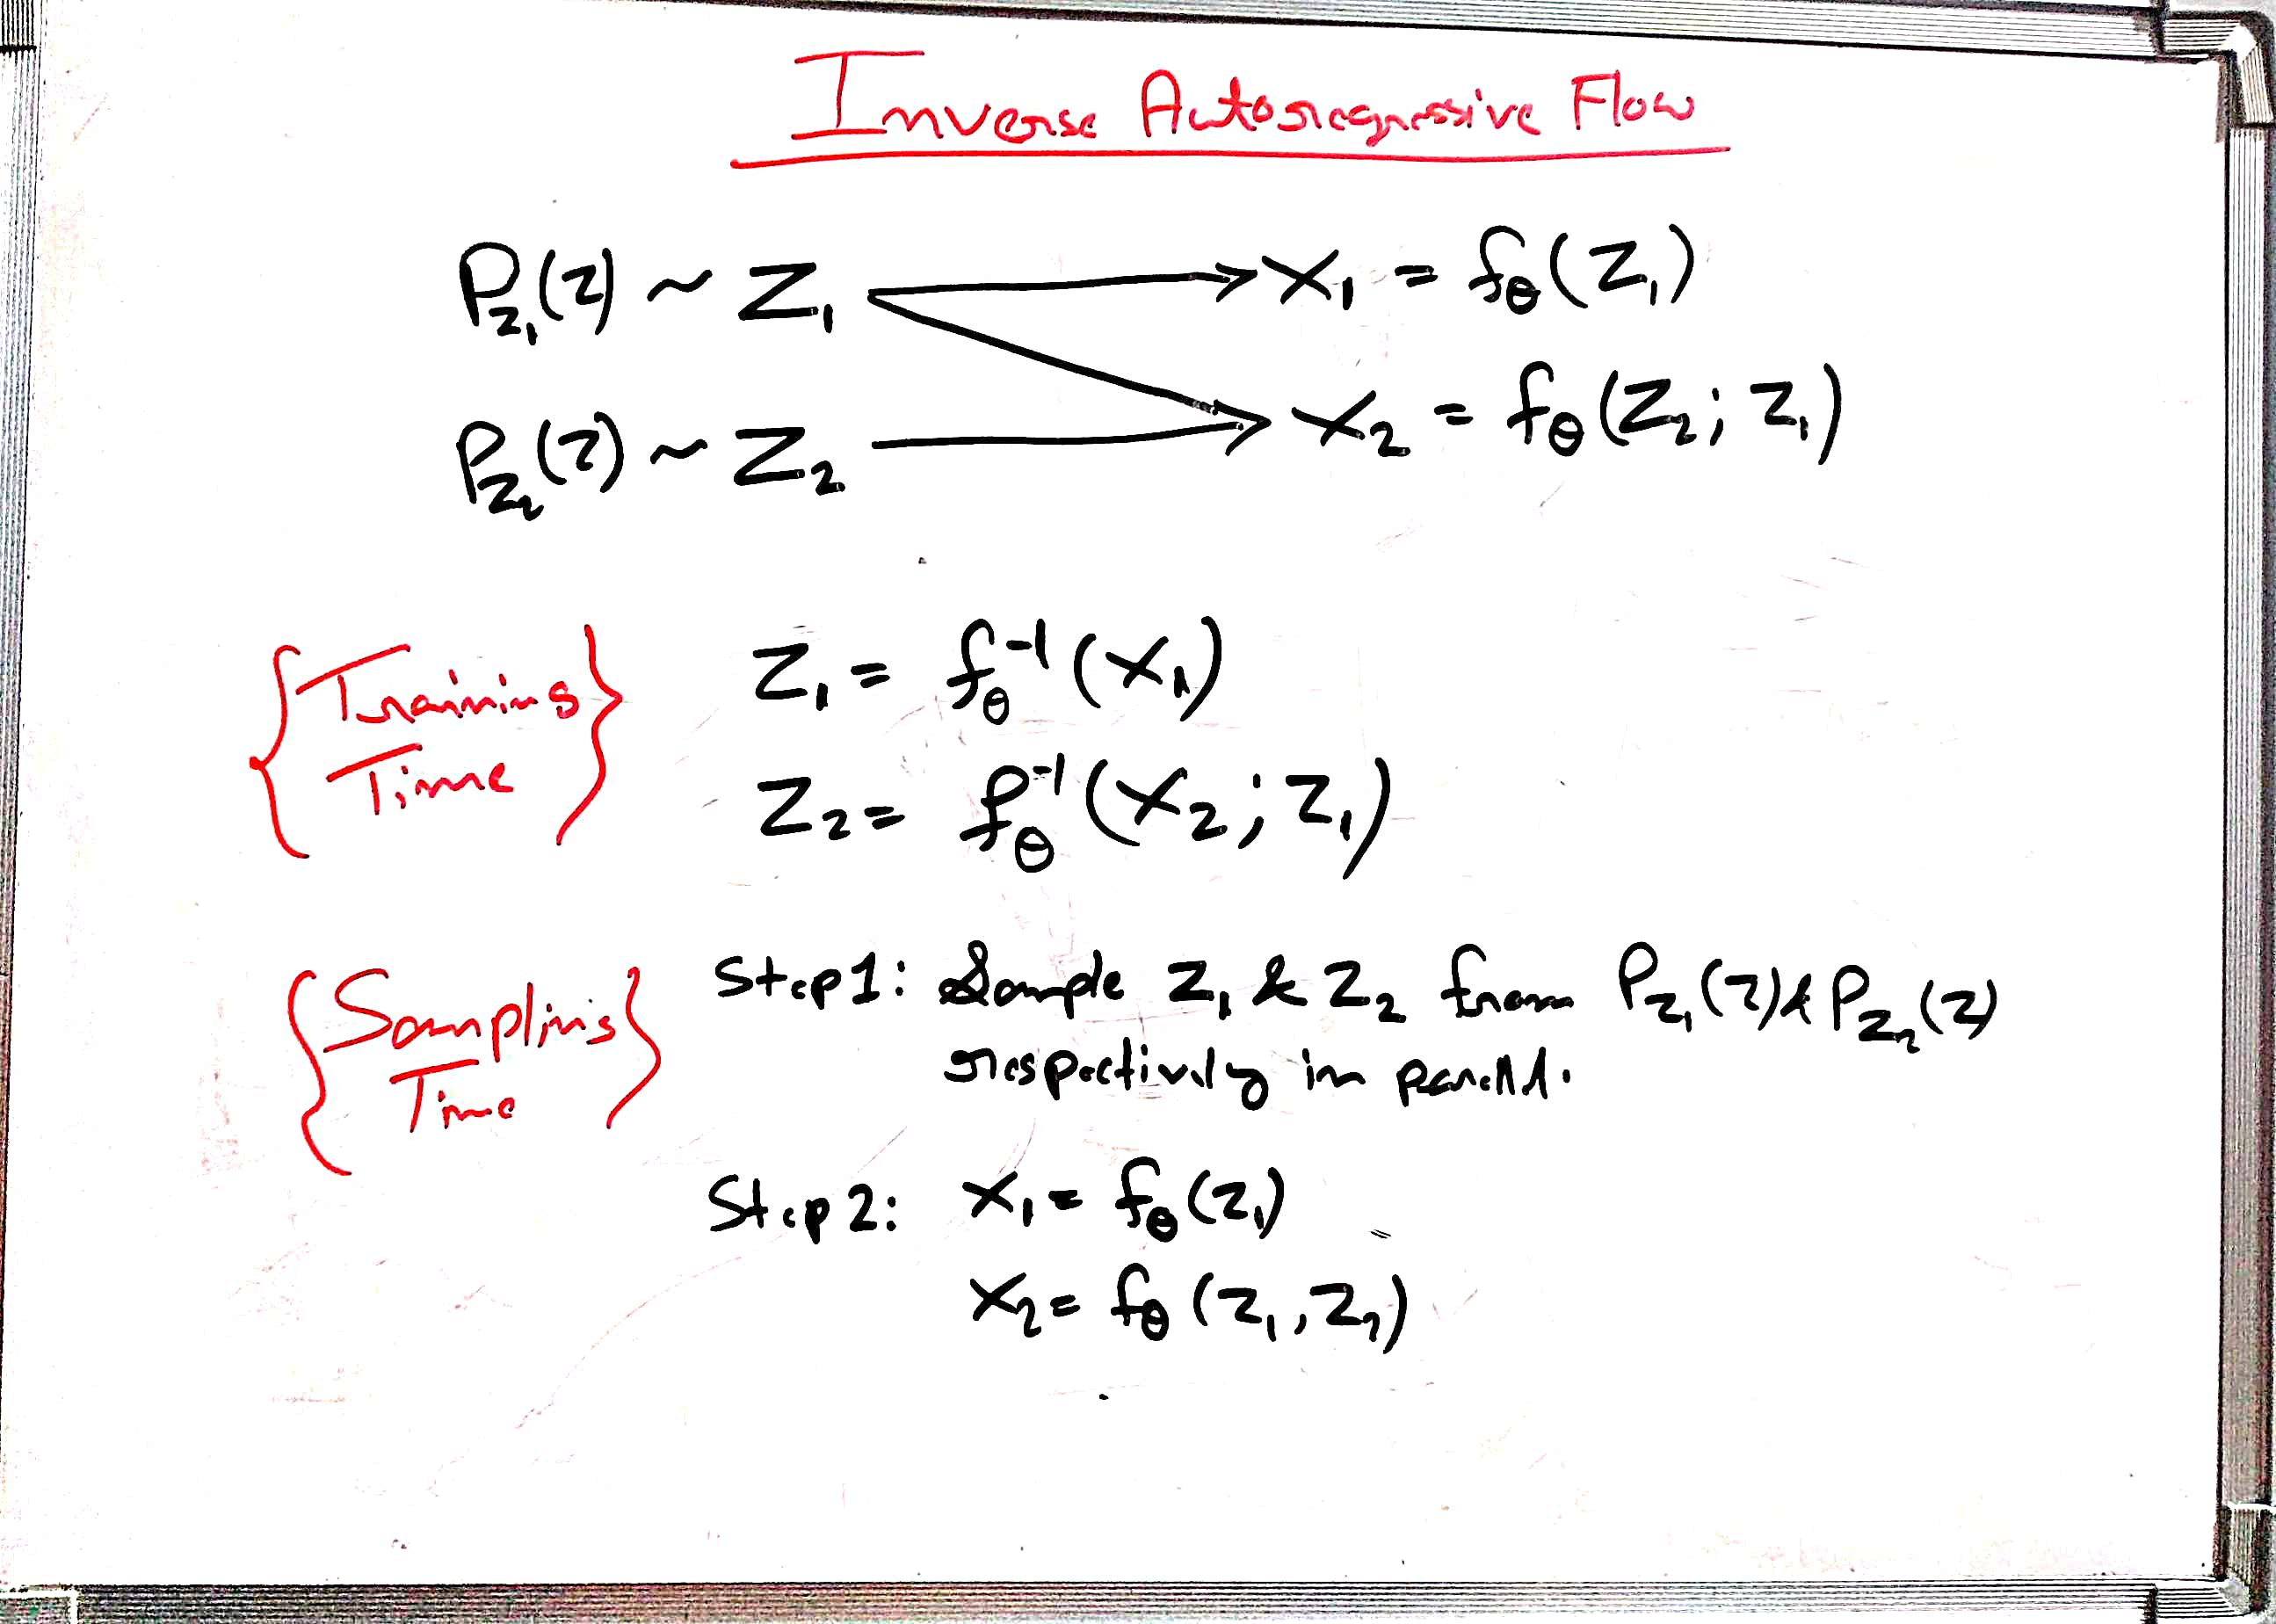 Inverse Autoregressive Flow
P_{Z₁}(Z) ~ Z₁ → X₁ = f_θ(Z₁)
P_{Z₂}(Z) ~ Z₂ → X₂ = f_θ(Z₂; Z₁)
{Training Time} Z₁ = f_θ⁻¹(X₁)
Z₂ = f_θ⁻¹(X₂; Z₁)
{Sampling Time} Step 1: Sample Z₁ & Z₂ from P_{Z₁}(Z) & P_{Z₂}(Z)
respectively in parallel.
Step 2: X₁ = f_θ(Z₁)
X₂ = f_θ(Z₁, Z₂)